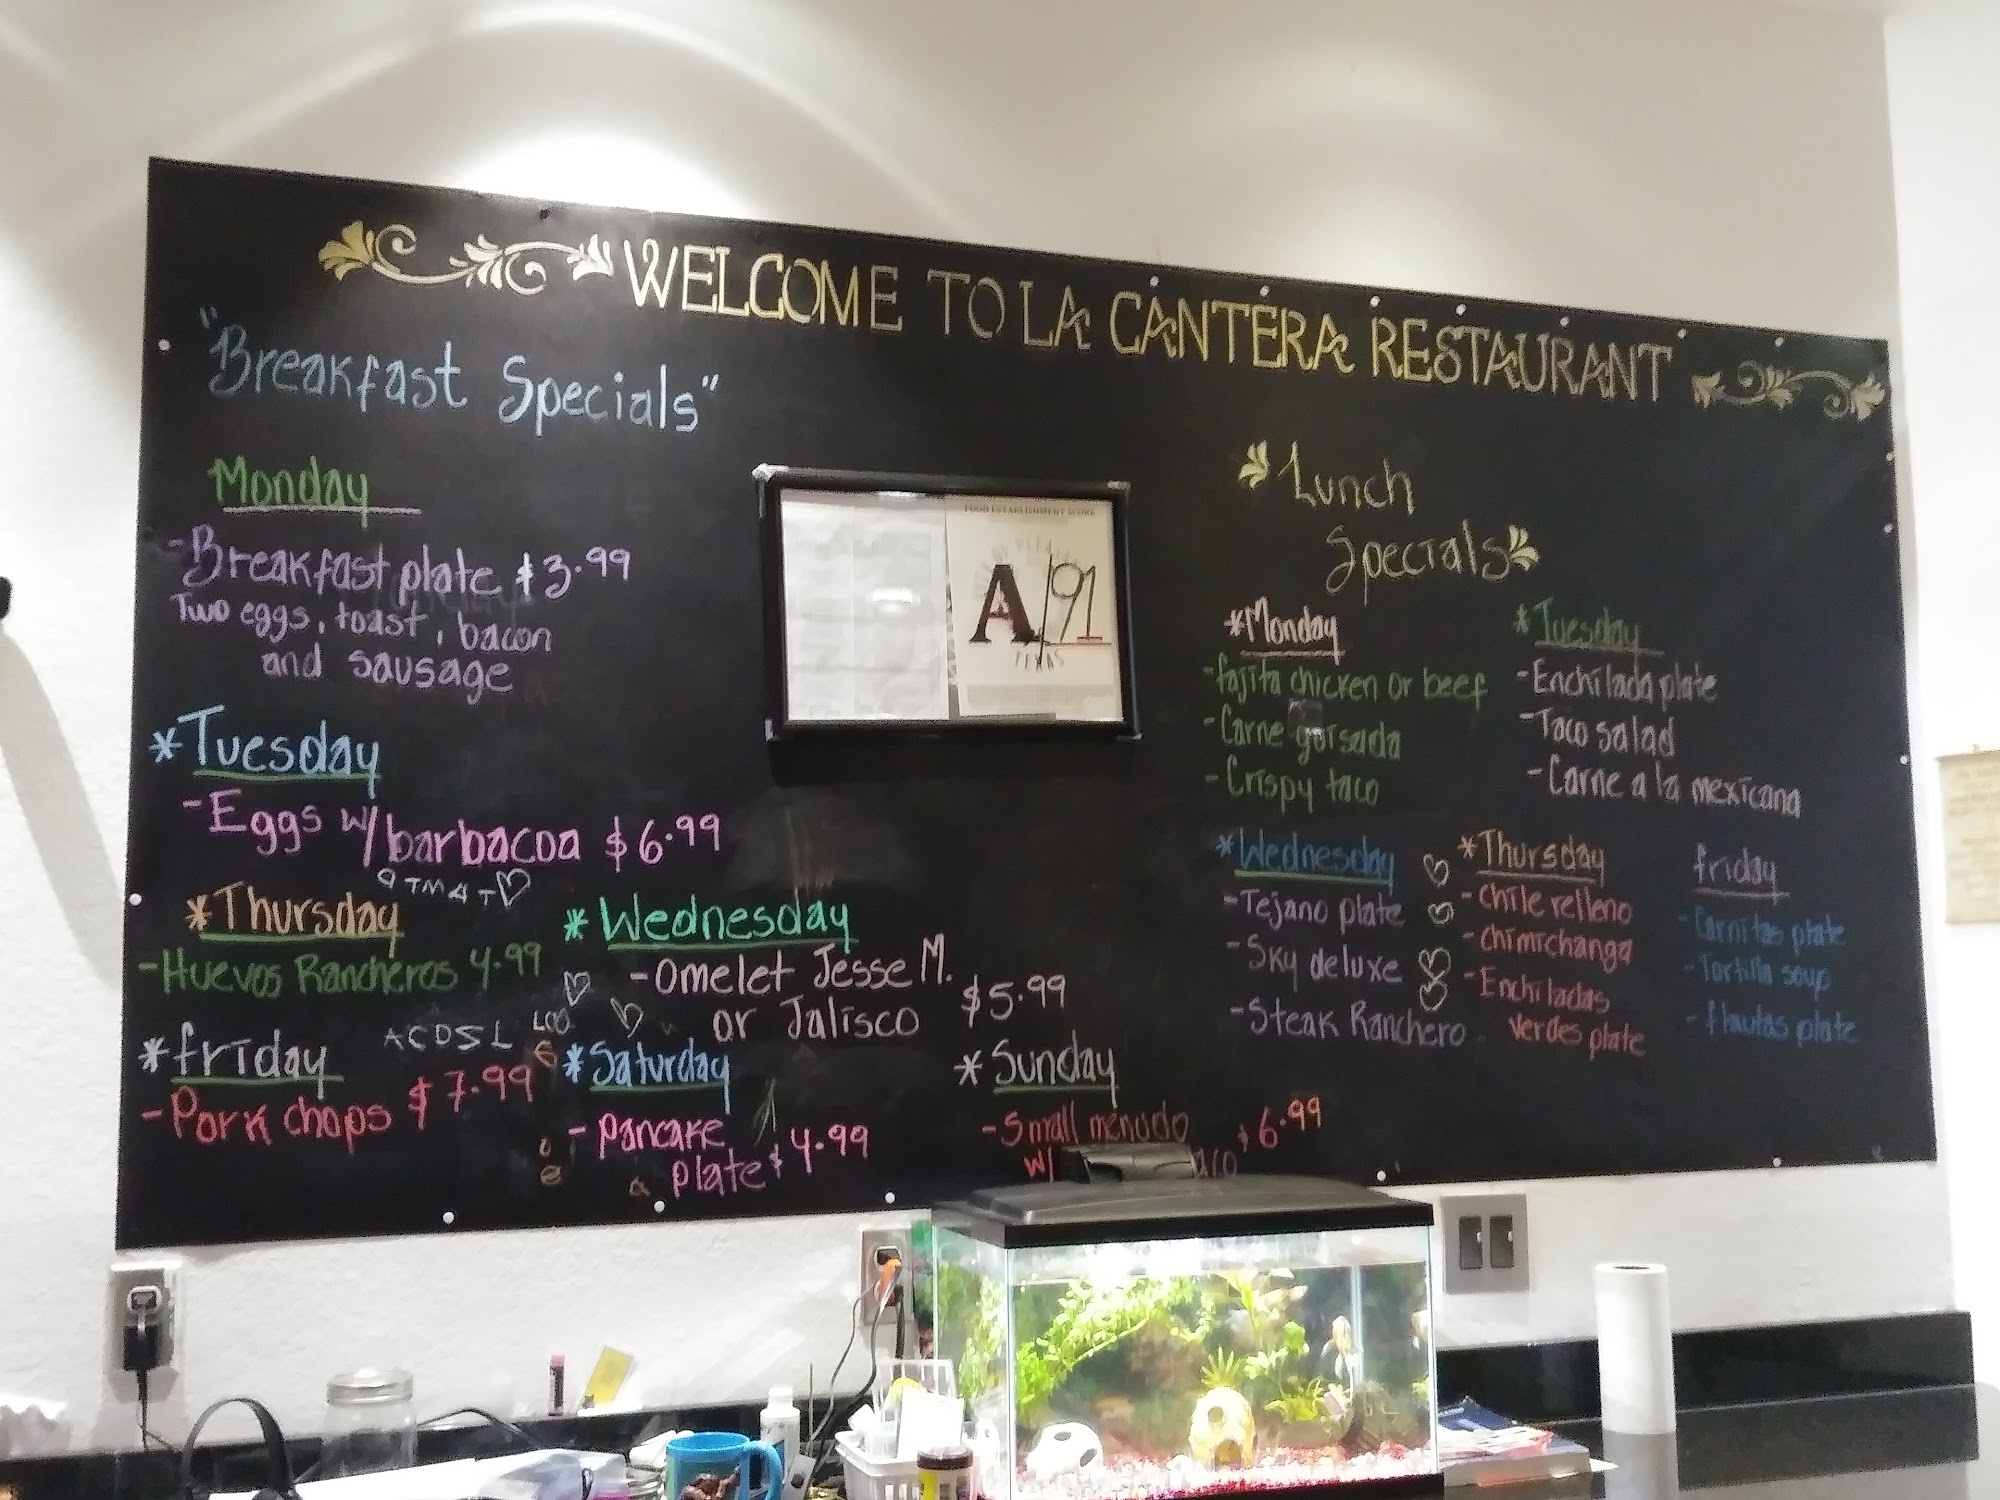 WELCOME TO LA CANTERA RESTAURANT
"Breakfast Specials"
Monday
-Breakfast plate $3.99
Two eggs, toast, bacon
and sausage
*Tuesday
-Eggs w/barbacoa $6.99
*Thursday
-Huevos Rancheros 4.99
*Wednesday
-Omelet Jesse M.
or Jalisco $5.99
*friday
-Pork chops $7.99
ACDSL
*Saturday
-pancake
plate $4.99
*Sunday
-Small menudo
w/ $6.99
FOOD ESTABLISHMENT SCORE
A/91
TEXAS
Lunch
Specials
*Monday
-fajita chicken or beef
-Carne goisada
-Crispy taco
*Tuesday
-Enchilada plate
-Taco salad
-Carne a la mexicana
*Wednesday
-Tejano plate
-Sky deluxe
-Steak Ranchero
*Thursday
-Chile relleno
-Chimichanga
-Enchiladas
verdes plate
friday
-Carnitas plate
-Tortilla soup
-flautas plate